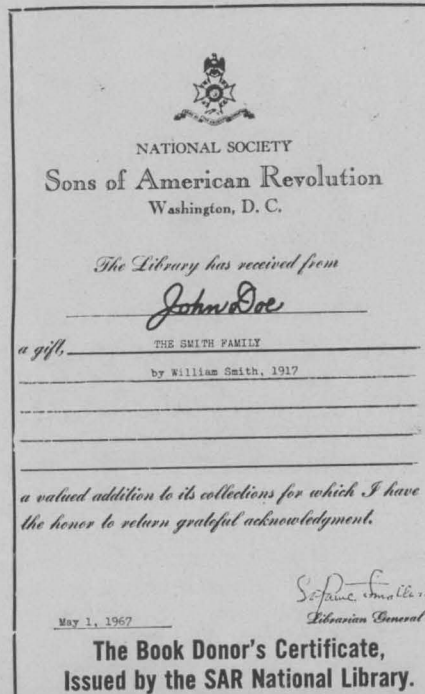 NATIONAL SOCIETY
Sons of American Revolution
Washington, D. C.
The Library has received from
John Doe
a gift, THE SMITH FAMILY
by William Smith, 1917
a valued addition to its collections for which I have
the honor to return grateful acknowledgment.
May 1, 1967
Librarian General
The Book Donor's Certificate,
Issued by the SAR National Library.